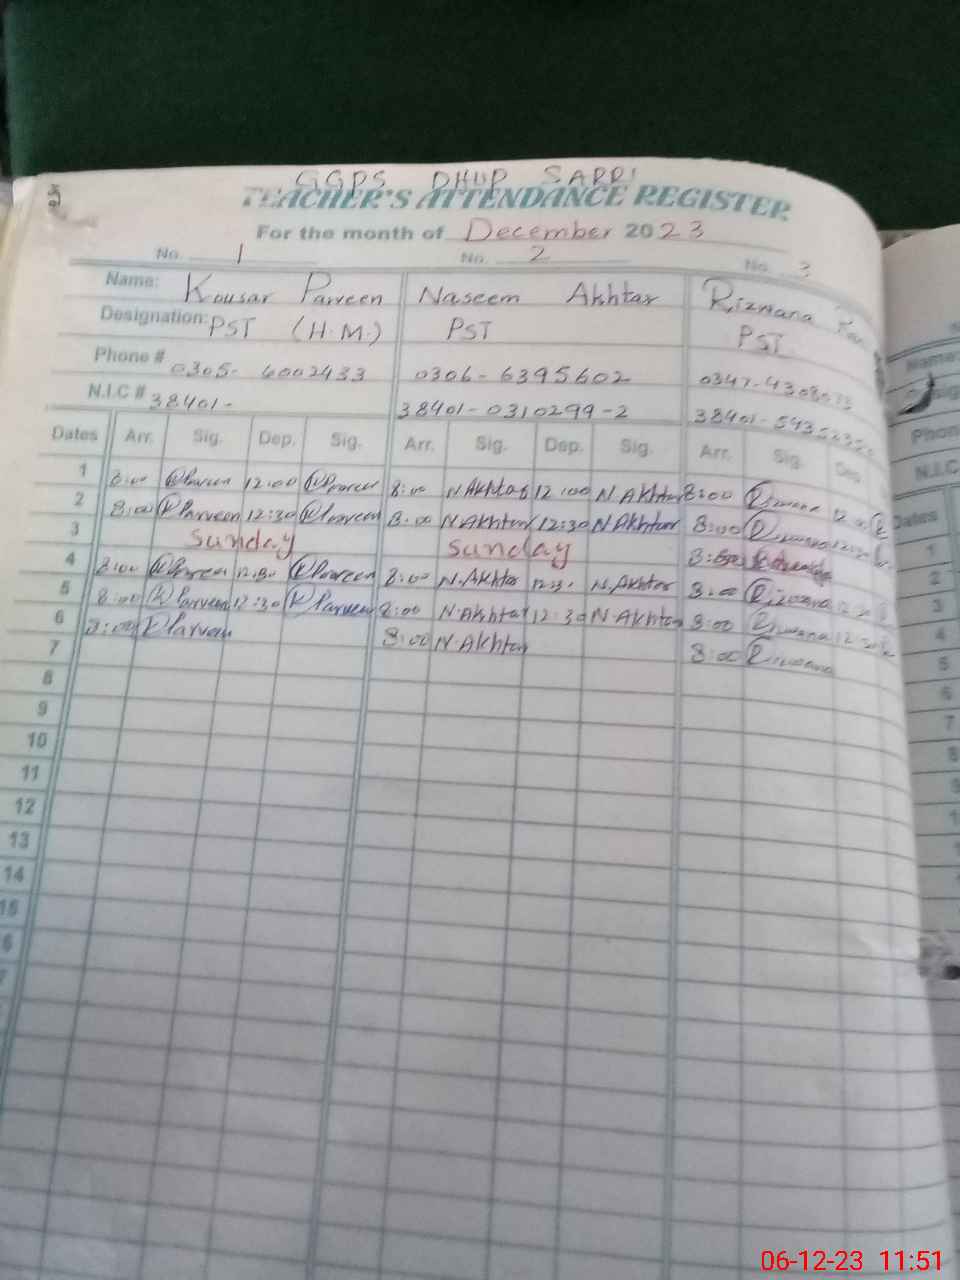 GGPS DHUP SARRI
TEACHER'S ATTENDANCE REGISTER
For the month of December 2023
No. 1 No. 2 No. 3
Name: Kousar Parveen Naseem Akhtar Rizwana
Designation: PST (H.M.) PST PST
Phone # 0305-6002433 0306-6395602
N.I.C # 38401- 38401-0310299-2
Dates Arr. Sig. Dep. Sig. Arr. Sig. Dep. Sig. Arr. Sig. Dep.
1 8:00 K Parveen 12:00 K Parveen 8:00 N Akhtar 12:00 N Akhtar 8:00 Rizwana
2 8:00 K Parveen 12:30 K Parveen 8:00 N Akhtar 12:30 N Akhtar 8:00 Rizwana
3 Sunday Sunday
4 8:00 K Parveen 12:30 K Parveen 8:00 N.Akhtar N.Akhtar 8:00 Rizwana
5 8:00 K Parveen 12:30 K Parveen 8:00 N.Akhtar 12:30 N.Akhtar 8:00 Rizwana
6 8:00 K Parveen 8:00 N.Akhtar 8:00 Rizwana
7
8
9
10
11
12
13
14
15
6
7
Name:
Phone
N.I.C
Dates
1
2
3
4
5
6
7
8
06-12-23 11:51